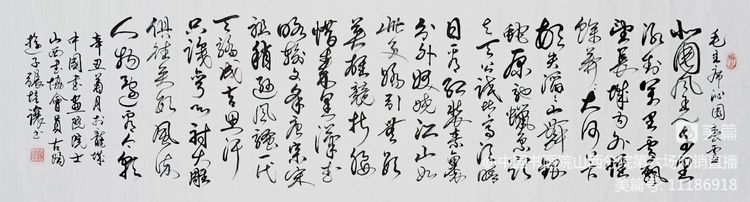 毛主席沁园春雪
北国风光千里
冰封万里雪飘
望长城内外惟
馀莽莽大河上下
顿失滔滔山舞银
蛇原驰蜡象欲
与天公试比高须晴
日看红装素裹
分外妖娆江山如
此多娇引无数
英雄竞折腰
惜秦皇汉武
略输文采唐宗宋
祖稍逊风骚一代
天骄成吉思汗
只识弯弓射大雕
俱往矣数风流
人物还看今朝
辛丑月于龍城
中國书画院院士
山西书協會員古陶
游子張桂书
美篇
中国书画院山西分院第六场直播
美篇号: 11186918